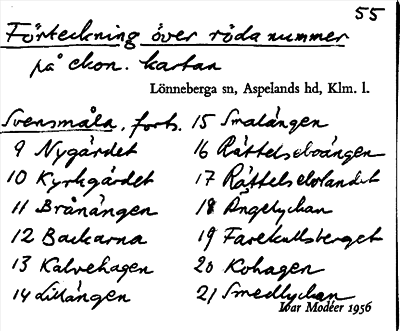 55
Förteckning över röda nummer
på ekon. kartan
Lönneberga sn, Aspelands hd, Klm. l.
Svensmåla, forts.
9 Nygärdet
10 Kyrkgärdet
11 Brånängen
12 Backarna
13 Kalvehagen
14 Lillängen
15 Smalängen
16 Rättelseboängen
17
18 Ängelyckan
19 Farekullsberget
20 Kohagen
21 Smedlyckan
Ivar Modéer 1956